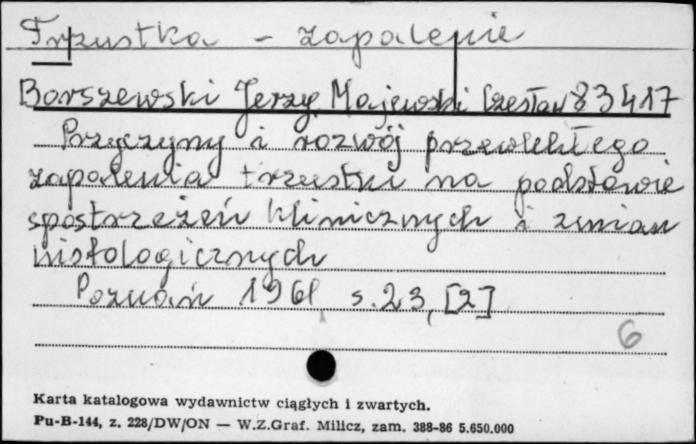 Trzustka - zapalenie
Borszewski Jerzy, Majewski Czesław 83417
Przyczyny i rozwój przewlekłego
zapalenia trzustki na podstawie
spostrzeżeń klinicznych i zmian
histologicznych
Poznań 1961 s. 23, [2]
6
Karta katalogowa wydawnictw ciągłych i zwartych.
Pu-B-144, z. 228/DW/ON — W.Z.Graf. Milicz, zam. 388-86 5.650.000